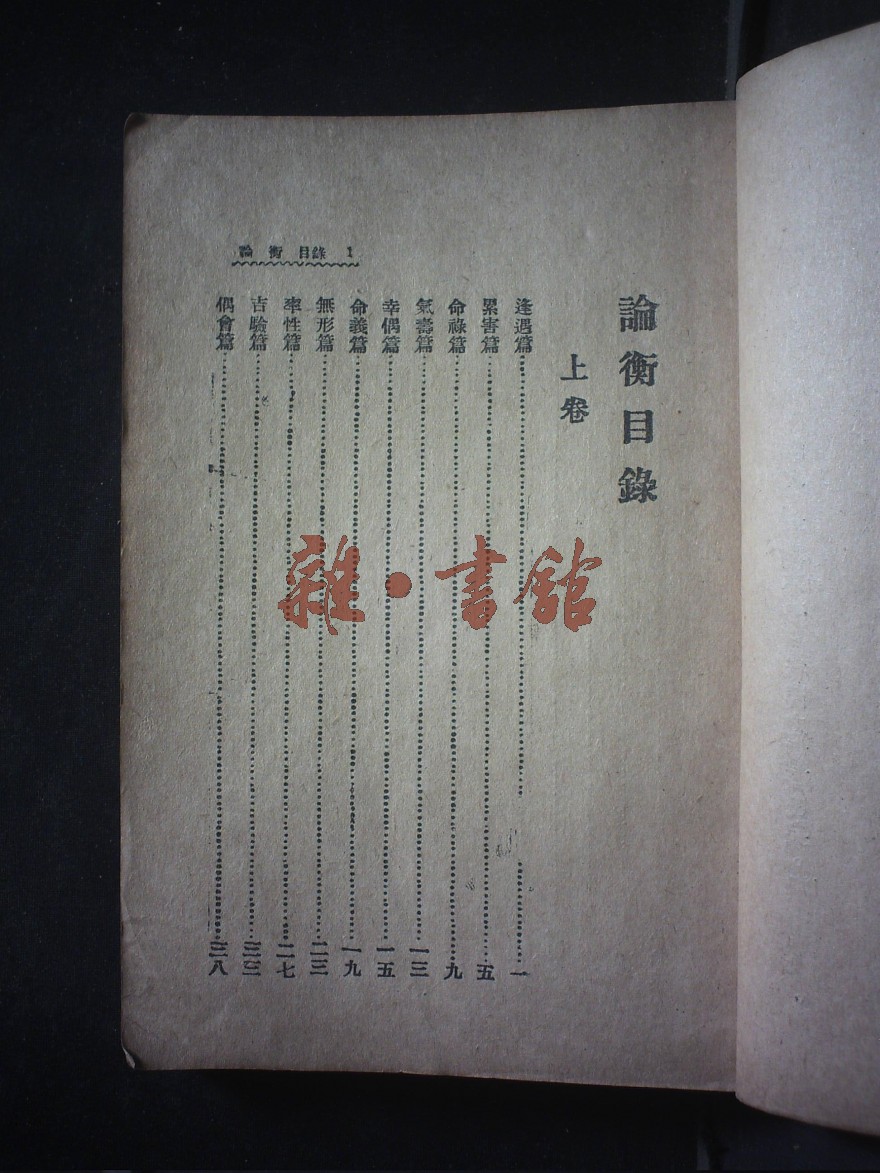 論衡目錄
上卷
逢遇篇……一
累害篇……五
命祿篇……九
氣壽篇……一三
幸偶篇……一五
命義篇……一九
無形篇……二三
率性篇……二七
吉驗篇……三三
偶會篇……三八
論衡 目錄 1
雜·書館